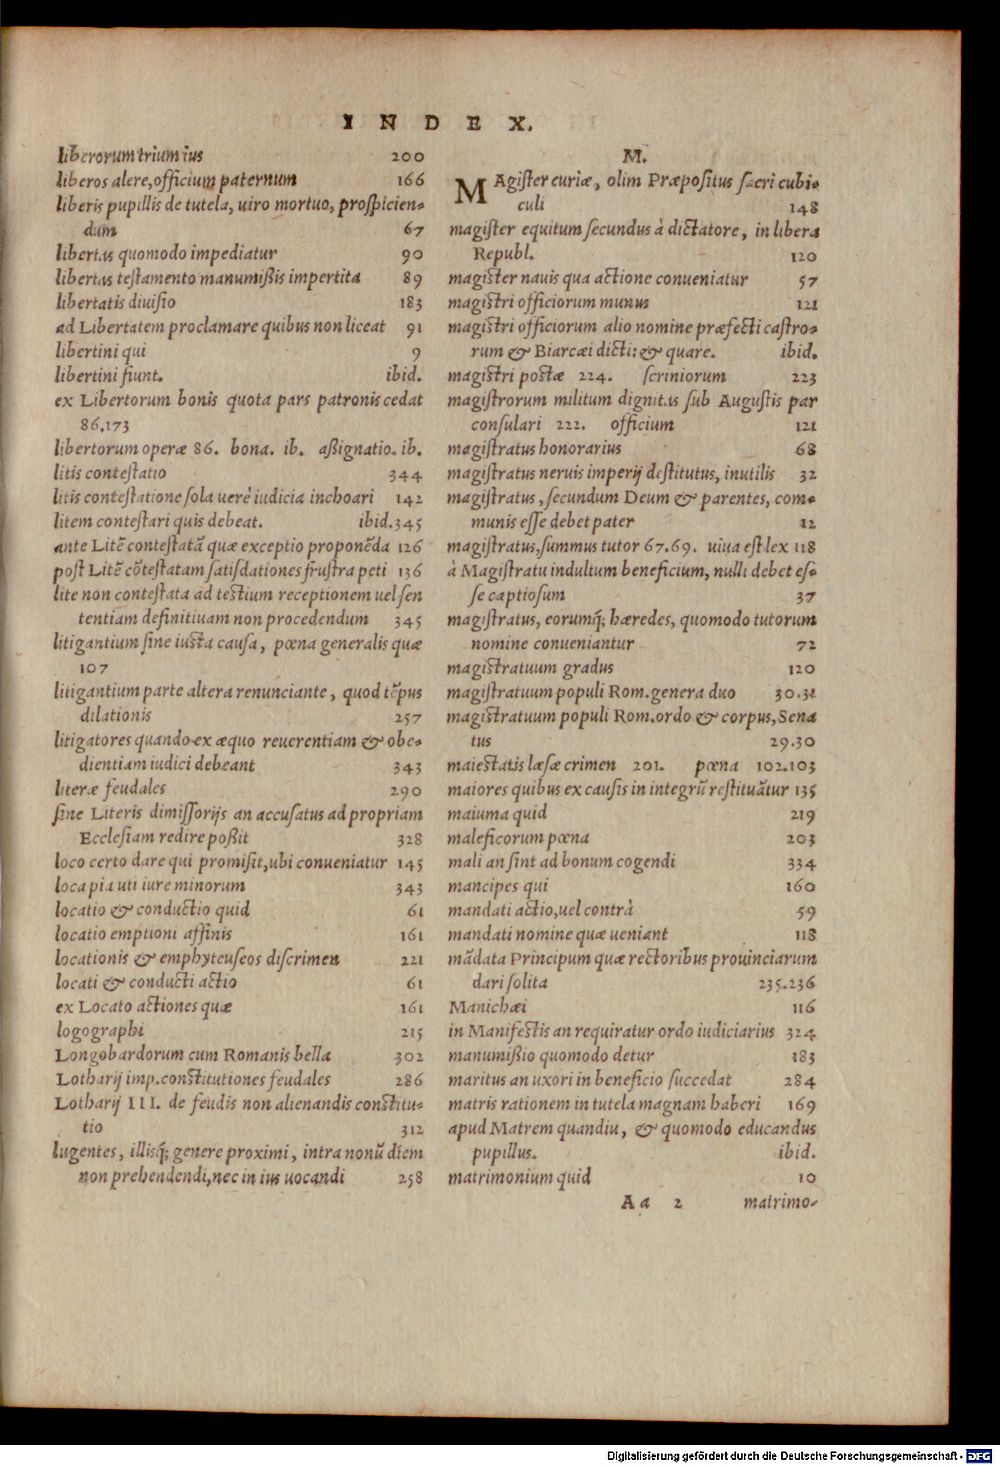 INDEX.
liberorum trium ius 200
liberos alere, officium paternum 166
liberis pupillis de tutela, uiro mortuo, prospicien-
dum 67
libertas quomodo impediatur 90
libertas testamento manumißis impertita 89
libertatis diuisio 183
ad Libertatem proclamare quibus non liceat 91
libertini qui 9
libertini fiunt. ibid.
ex Libertorum bonis quota pars patronis cedat
86.173
libertorum operæ 86. bona. ib. aßignatio. ib.
litis contestatio 344
litis contestatione sola uerè iudicia inchoari 142
litem contestari quis debeat. ibid.345
ante Litē contestatā quæ exceptio proponēda 126
post Litē cōtestatam satisdationes frustra peti 136
lite non contestata ad testium receptionem uel sen
tentiam definitiuam non procedendum 345
litigantium sine iusta causa, pœna generalis quæ
107
litigantium parte altera renunciante, quod tēpus
dilationis 257
litigatores quando ex æquo reuerentiam & obe-
dientiam iudici debeant 343
literæ feudales 290
sine Literis dimissorijs an accusatus ad propriam
Ecclesiam redire poßit 328
loco certo dare qui promisit, ubi conueniatur 145
loca pia uti iure minorum 343
locatio & conductio quid 61
locatio emptioni affinis 161
locationis & emphyteuseos discrimen 221
locati & conducti actio 61
ex Locato actiones quæ 161
logographi 215
Longobardorum cum Romanis bella 302
Lotharij imp. constitutiones feudales 286
Lotharij III. de feudis non alienandis constitu-
tio 312
lugentes, illisq́; genere proximi, intra nonū diem
non prehendendi, nec in ius uocandi 258
M.
MAgister curiæ, olim Præpositus sacri cubi-
culi 148
magister equitum secundus à dictatore, in libera
Republ. 120
magister nauis qua actione conueniatur 57
magistri officiorum munus 121
magistri officiorum alio nomine præfecti castro-
rum & Biarcæi dicti: & quare. ibid.
magistri postæ 224. scriniorum 223
magistrorum militum dignitas sub Augustis par
consulari 222. officium 121
magistratus honorarius 68
magistratus neruis imperij destitutus, inutilis 32
magistratus, secundum Deum & parentes, com-
munis esse debet pater 12
magistratus, summus tutor 67.69. uiua est lex 118
à Magistratu indultum beneficium, nulli debet es-
se captiosum 37
magistratus, eorumq́; hæredes, quomodo tutorum
nomine conueniantur 72
magistratuum gradus 120
magistratuum populi Rom. genera duo 30.31
magistratuum populi Rom. ordo & corpus, Sena
tus 29.30
maiestatis læsæ crimen 201. pœna 102.103
maiores quibus ex causis in integrū restituātur 135
maiuma quid 219
maleficorum pœna 203
mali an sint ad bonum cogendi 334
mancipes qui 160
mandati actio, uel contrà 59
mandati nomine quæ ueniant 118
mādata Principum quæ rectoribus prouinciarum
dari solita 235.236
Manichæi 116
in Manifestis an requiratur ordo iudiciarius 324
manumißio quomodo detur 183
maritus an uxori in beneficio succedat 284
matris rationem in tutela magnam haberi 169
apud Matrem quandiu, & quomodo educandus
pupillus. ibid.
matrimonium quid 10
Aa 2 matrimo-
Digitalisierung gefördert durch die Deutsche Forschungsgemeinschaft - DFG